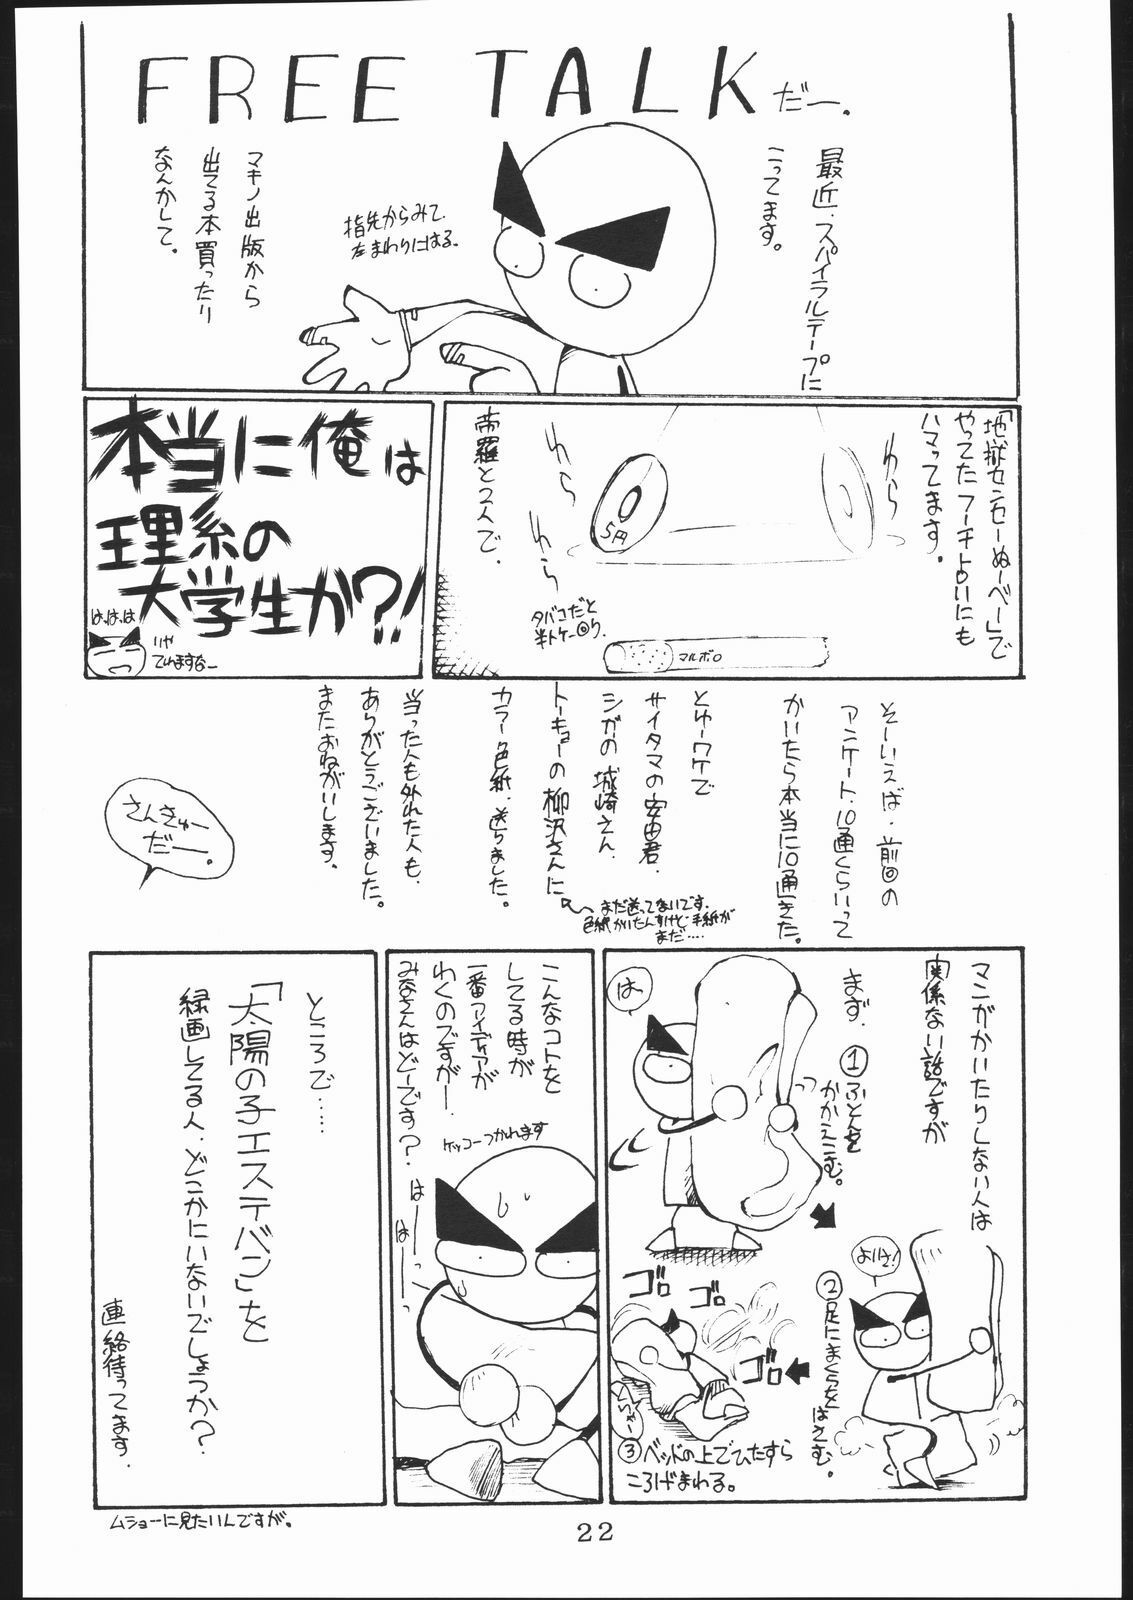 FREE TALKだー。
最近、スパイラルテープに
こってます。
指先からみて、
左まわりにはる。
マキノ出版から
出てる本買ったり
なんかして。
「地獄センセーぬ〜べ〜」で
やってたフーチ占いにも
ハマってます。
われら
われら
われら
5円
帝羅と2人で、
タバコだと
マルボロ
本当に俺は
理系の
大学生か?!
は、は、は
りゃ
ていますなー
そーいえば、前回の
アンケート、10通くらいって
かいたら本当に10通きた。
とゆーワケで
サイタマの安由君、
シガの城崎さん、
トーキョーの柳沢さんに
カラー色紙、送りました。
まだ送ってないです。
色紙かいたんすけど手紙が
まだ……
当った人も外れた人も、
ありがとうございました。
またおねがいします。
さんきゅー
だー。
マンガかいたりしない人は
関係ない話ですが
まず、
①ふとんを
かかえこむ。
は
よいしょ!
②足にまくらをはさむ。
ゴロ
ゴロ
ゴロ
③ベッドの上でひたすら
ころげまわる。
こんなコトを
してる時が
一番アイディアが
わくのですがー、
みなさんはどーです?
ケッコーつかれます
はーーっ
はーー
ところで……
「太陽の子エステバン」を
録画してる人、どこかにいないでしょうか?
連絡待ってます。
ムショーに見たいんですが。
22